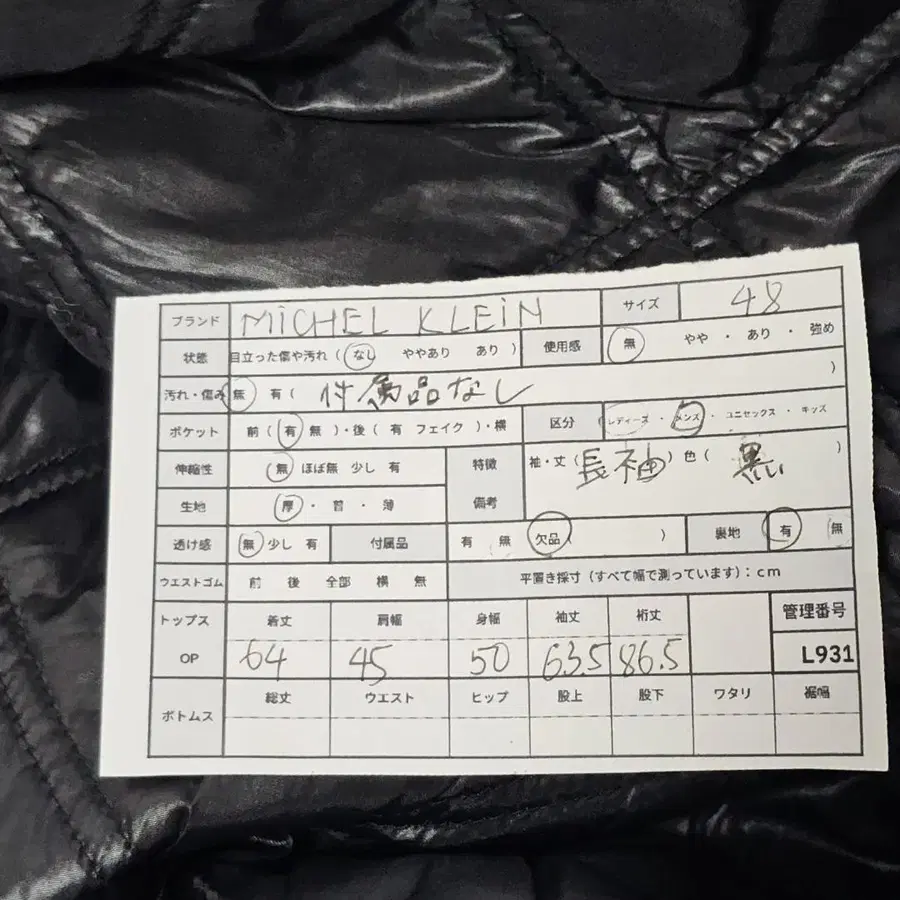 ブランド MiCHEL KLEiN サイズ 48
状態 目立った傷や汚れ ( なし ややあり あり ) 使用感 無 やや ・ あり ・ 強め
汚れ・傷み 無 有 ( 付属品なし )
ポケット 前 ( 有 無 ) ・後 ( 有 フェイク ) ・横 区分 レディース ・ メンズ ・ ユニセックス ・ キッズ
伸縮性 無 ほぼ無 少し 有 特徴 備考 袖・丈 ( 長袖 ) 色 ( 黒 )
生地 厚 ・ 普 ・ 薄
透け感 無 少し 有 付属品 有 無 欠品 ( ) 裏地 有 無
ウエストゴム 前 後 全部 横 無 平置き採寸 (すべて幅で測っています) : cm
トップス 着丈 肩幅 身幅 袖丈 裄丈 管理番号
OP 64 45 50 63.5 86.5 L931
ボトムス 総丈 ウエスト ヒップ 股上 股下 ワタリ 裾幅